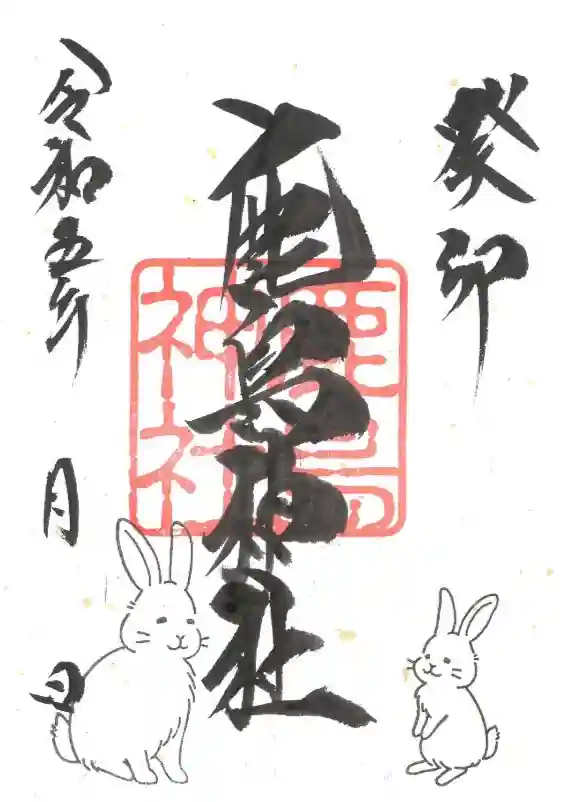 癸卯
鹿島神社
鹿島
神社
令和五年
月
日